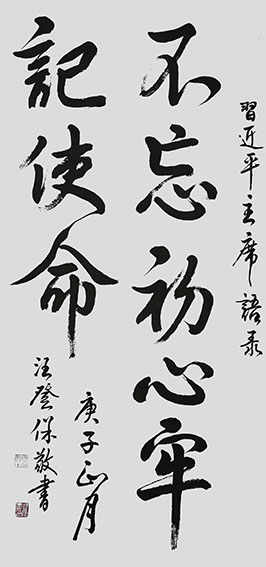 習近平主席語录
不忘初心牢
記使命
庚子正月
汪登保敬書